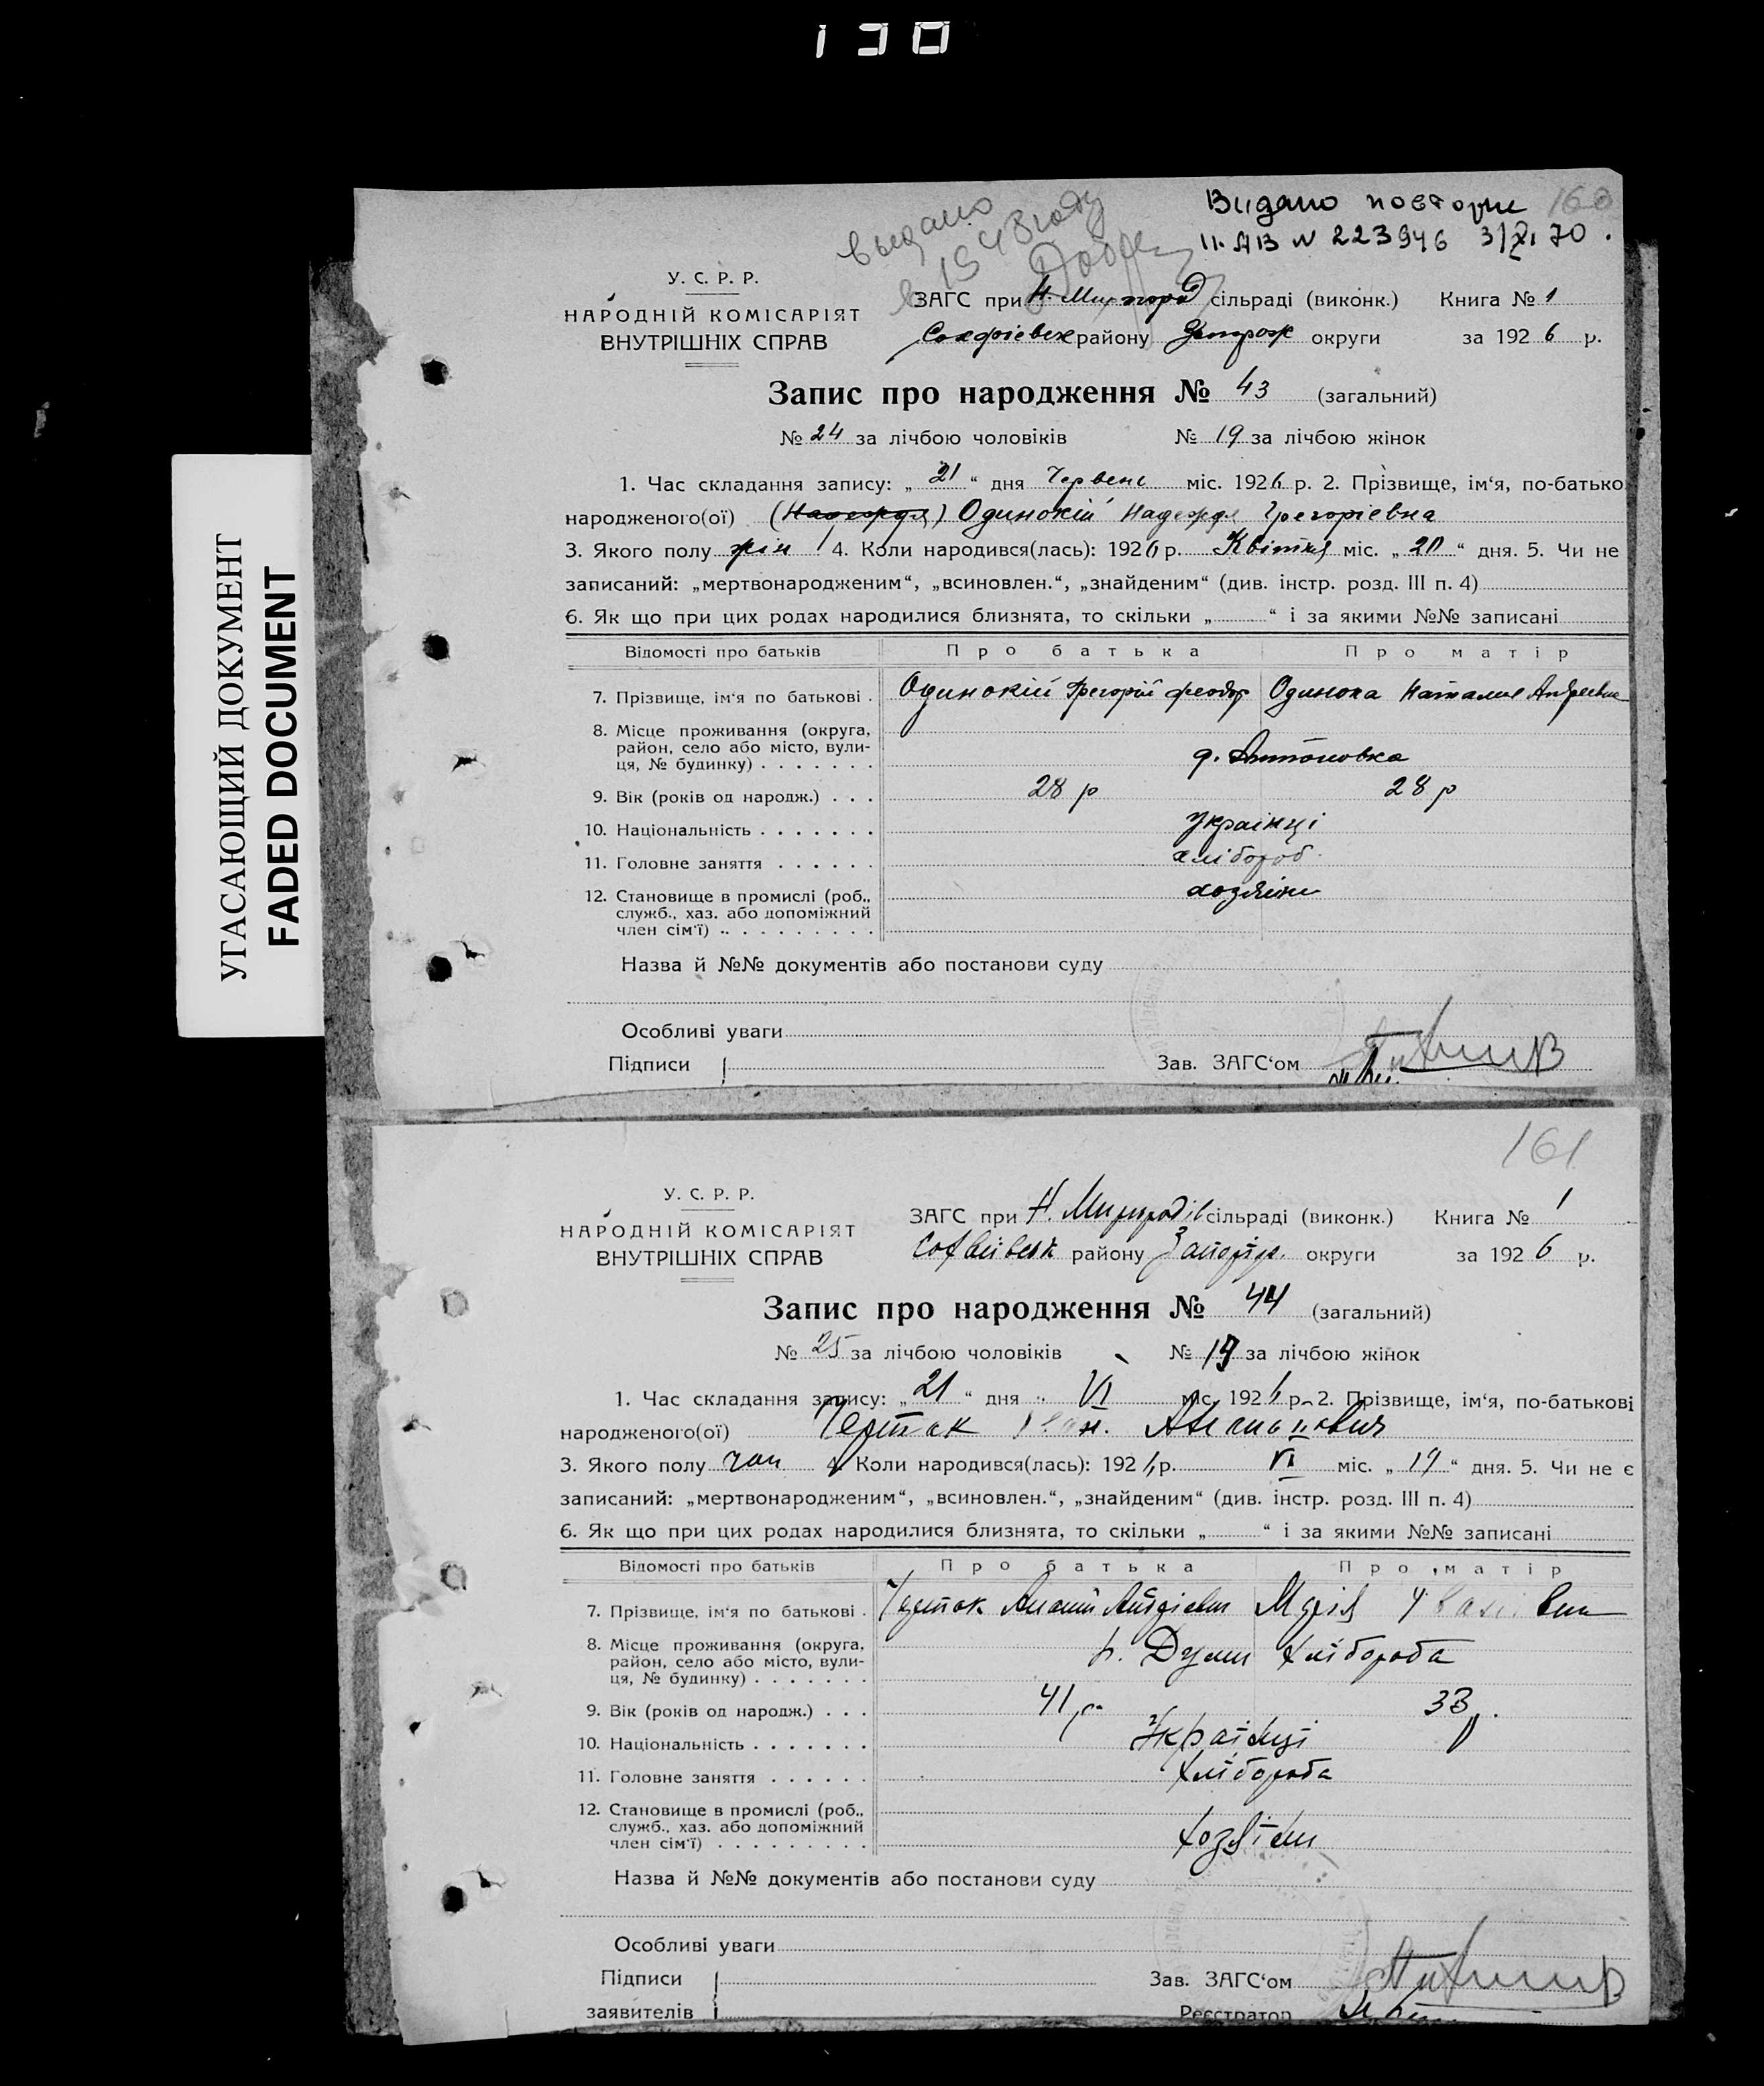 130
УГАСАЮЩИЙ ДОКУМЕНТ
FADED DOCUMENT
Выдано
в 1948 году
Видано повторне 160
II-АВ № 223946 3/XI 70.
У. С. Р. Р.
НАРОДНІЙ КОМІСАРІЯТ
ВНУТРІШНІХ СПРАВ
ЗАГС при Н. Миргород сільраді (виконк.) Книга № 1
району Запрож округи за 1926 р.
Запис про народження № 43 (загальний)
№ 24 за лічбою чоловіків № 19 за лічбою жінок
1. Час складання запису: „21“ дня Червень міс. 1926 р. 2. Прізвище, ім‘я, по-батько
народженого(ої) (Надежда) Одинокій Надежда Грегоріевна
3. Якого полу жін 4. Коли народився(лась): 1926 р. Квітня міс. „20“ дня. 5. Чи не
записаний: „мертвонародженим“, „всиновлен.“, „знайденим“ (див. інстр. розд. III п. 4)
6. Як що при цих родах народилися близнята, то скільки „ “ і за якими №№ записані
Відомості про батьків Про батька Про матір
7. Прізвище, ім‘я по батькові . Одинокій Грегорій Феодор Одинока Наталия Андреевна
8. Місце проживання (округа,
район, село або місто, вули-
ця, № будинку) . . . . . . . д. Антоновка
9. Вік (років од народж.) . . . 28 р 28 р
10. Національність . . . . . . . Українці
11. Головне заняття . . . . . . хлібороб
12. Становище в промислі (роб., хозяіни
служб., хаз. або допоміжний
член сім‘ї) . . . . . . . . . .
Назва й №№ документів або постанови суду
Особливі уваги
Підписи Зав. ЗАГС‘ом
161
У. С. Р. Р.
НАРОДНІЙ КОМІСАРІЯТ
ВНУТРІШНІХ СПРАВ
ЗАГС при Н. Миргородів сільраді (виконк.) Книга № 1
району округи за 1926 р.
Запис про народження № 44 (загальний)
№ 25 за лічбою чоловіків № 19 за лічбою жінок
1. Час складання запису: „21“ дня VI міс. 1926 р. 2. Прізвище, ім‘я, по-батькові
народженого(ої) Черток Іван
3. Якого полу чол 4. Коли народився(лась): 1926 р. VI міс. „19“ дня. 5. Чи не є
записаний: „мертвонародженим“, „всиновлен.“, „знайденим“ (див. інстр. розд. III п. 4)
6. Як що при цих родах народилися близнята, то скільки „ “ і за якими №№ записані
Відомості про батьків Про батька Про матір
7. Прізвище, ім‘я по батькові . Черток Марія Іванівна
8. Місце проживання (округа,
район, село або місто, вули- Хлібороба
ця, № будинку) . . . . . . .
9. Вік (років од народж.) . . . 41 р. 33 р.
10. Національність . . . . . . . Українці
11. Головне заняття . . . . . . Хлібороба
12. Становище в промислі (роб.,
служб., хаз. або допоміжний
член сім‘ї) . . . . . . . . . Хозяїни
Назва й №№ документів або постанови суду
Особливі уваги
Підписи Зав. ЗАГС‘ом
заявителів Реєстратор